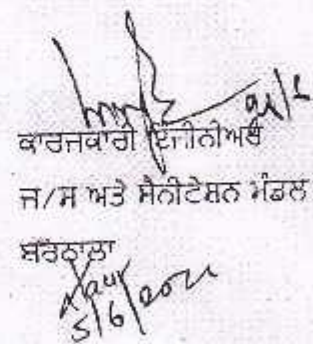 ਕਾਰਜਕਾਰੀ ਇੰਜੀਨੀਅਰ
ਜ/ਸ ਅਤੇ ਸੈਨੀਟੇਸ਼ਨ ਮੰਡਲ
ਬਰਨਾਲਾ
5/6/2021